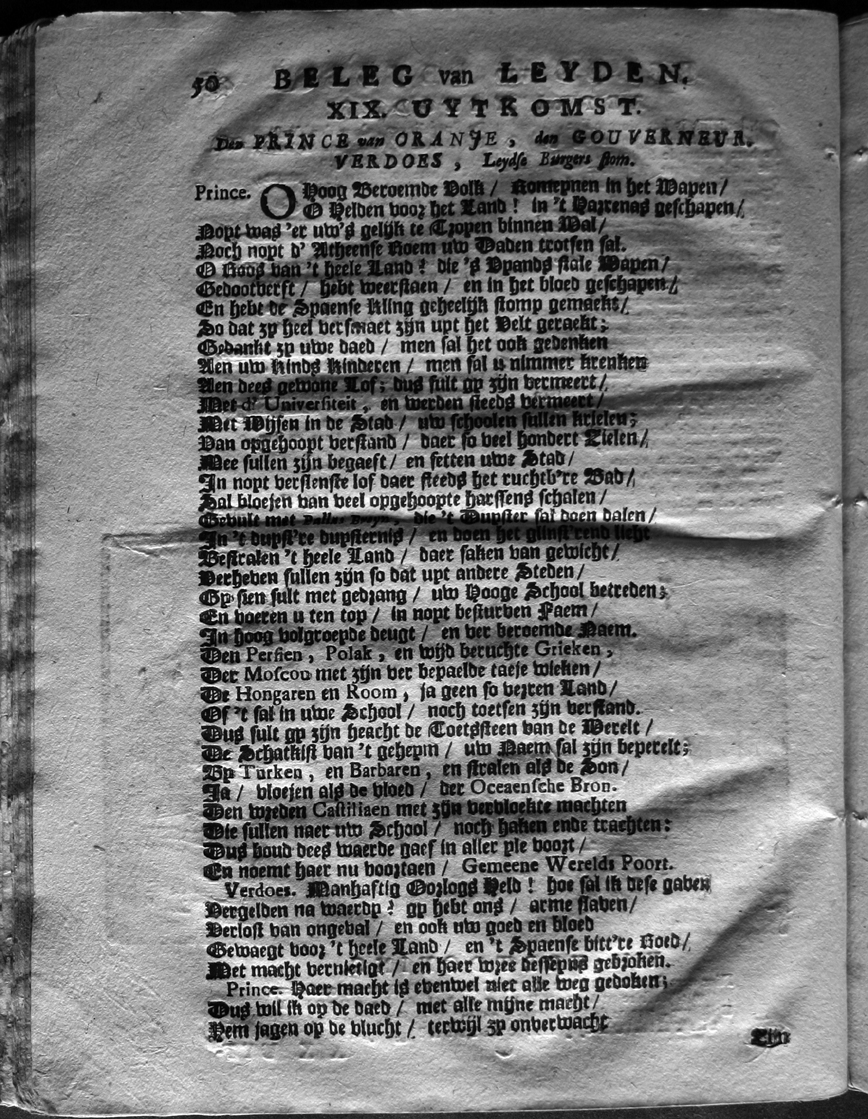 50 BELEG van LEYDEN.
XIX. UYTKOMST.
Den PRINCE van ORANJE, den GOUVERNEUR.
VERDOES, Leydse Burgers stom.
Prince. O Hoog Beroemde Volk / Konsepnen in het Wapen /
O Helden voor het Land! in 't Harrenas geschapen /
Nopt was 'er uw's gelijk te Tropen binnen Wal /
Noch nopt d' Atheense Roem uw Daden trotsen sal.
O Roos van 't heele Land! die 's Vpands stale Wapen /
Gedootverft / hebt weerstaen / en in het bloed geschapen /
En hebt de Spaense Kling geheelijk stomp gemaekt /
So dat zp heel versmaet zijn upt het Velt geraekt;
Gedankt zp uwe daed / men sal het ook gedenken
Aen uw Kinds Kinderen / men sal u nimmer krenken
Aen dees gewone Lof; dus sult gp zijn vermeert /
Met d' Universiteit, en werden steeds vermeert /
Met Wijsen in de Stad / uw schoolen sullen krielen;
Van opgehoopt verstand / daer so veel hondert Zielen /
Mee sullen zijn begaeft / en setten uwe Stad /
In nopt verslenste lof daer steeds het ruchtb're Bad /
Sal bloejen van veel opgehoopte harssens schalen /
Gevult met Pallas Breyn, die 't Dupster sal doen dalen /
In 't dupst're dupsternis / en doen het glinst'rend licht
Bestralen 't heele Land / daer saken van gewicht /
Verheven sullen zijn so dat upt andere Steden /
Gp sien sult met gedrang / uw Hooge School betreden;
En voeren u ten top / in nopt besturven Faem /
In hoog volgroepde deugt / en ver beroemde Naem.
Den Persien, Polak, en wijd beruchte Grieken,
Der Moscou met zijn ver bepaelde taeje wieken /
De Hongaren en Room, ja geen so verren Land /
Of 't sal in uwe School / noch toetsen zijn verstand.
Dus sult gp zijn heacht de Toetssteen van de Werelt /
De Schatkist van 't gehepm / uw Naem sal zijn beperelt;
Bp Turken, en Barbaren, en stralen als de Son /
Ja / bloejen als de vloed / der Oceaensche Bron.
Den wreden Castiliaen met zijn vervloekte machten
Die sullen naer uw School / noch haken ende trachten:
Dus houd dees waerde gaef in aller ple voort /
En noemt haer nu voortaen / Gemeene Werelds Poort.
Verdoes. Manhaftig Oorlogs Held! hoe sal ik dese gaven
Vergelden na waerdp? gp hebt ons / arme slaven /
Verlost van ongeval / en ook uw goed en bloed
Gewaegt voor 't heele Land / en 't Spaense bitt're Roed /
Met macht vernietigt / en haer wree dessepns gebroken.
Prince. Haer macht is evenwel niet alle weg gedoken;
Dus wil ik op de daed / met alle mijne macht /
Hem jagen op de vlucht / terwijl zp onverwacht